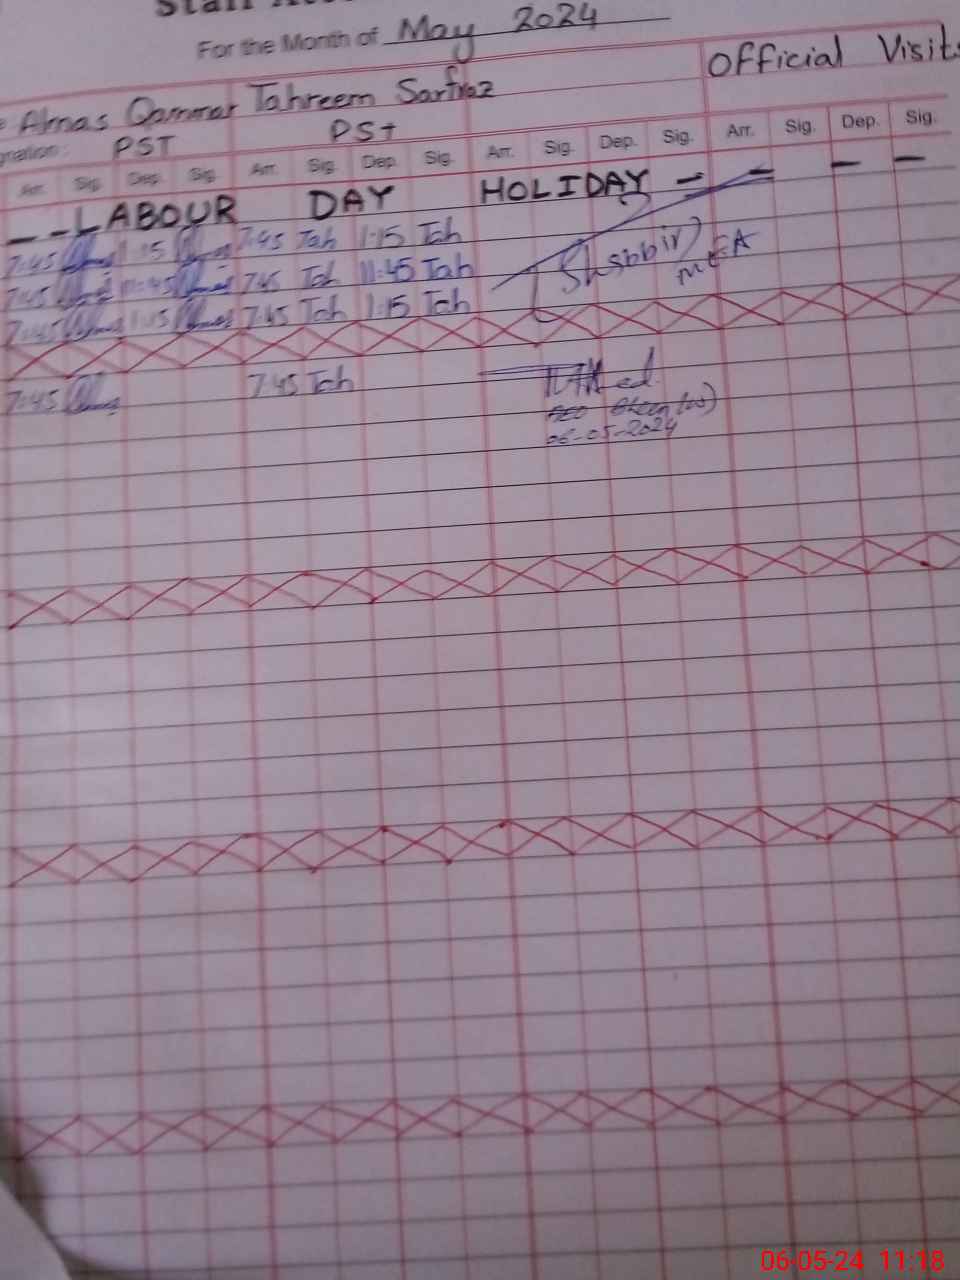 For the Month of May 2024
Almas Qammar Tahreem Sarfraz Official Visits
PST PST
Arr. Sig. Dep. Sig. Arr. Sig. Dep. Sig. Arr. Sig. Dep. Sig. Arr. Sig. Dep. Sig.
- - LABOUR DAY HOLIDAY - - - -
7:45 1:15 7:45 Tah 1:15 Tah
7:45 11:45 7:45 Tah 11:45 Tah
(Shabbir) MEA
7:45 1:15 7:45 Tah 1:15 Tah
7:45 7:45 Tah
06-05-2024
06-05-24 11:18